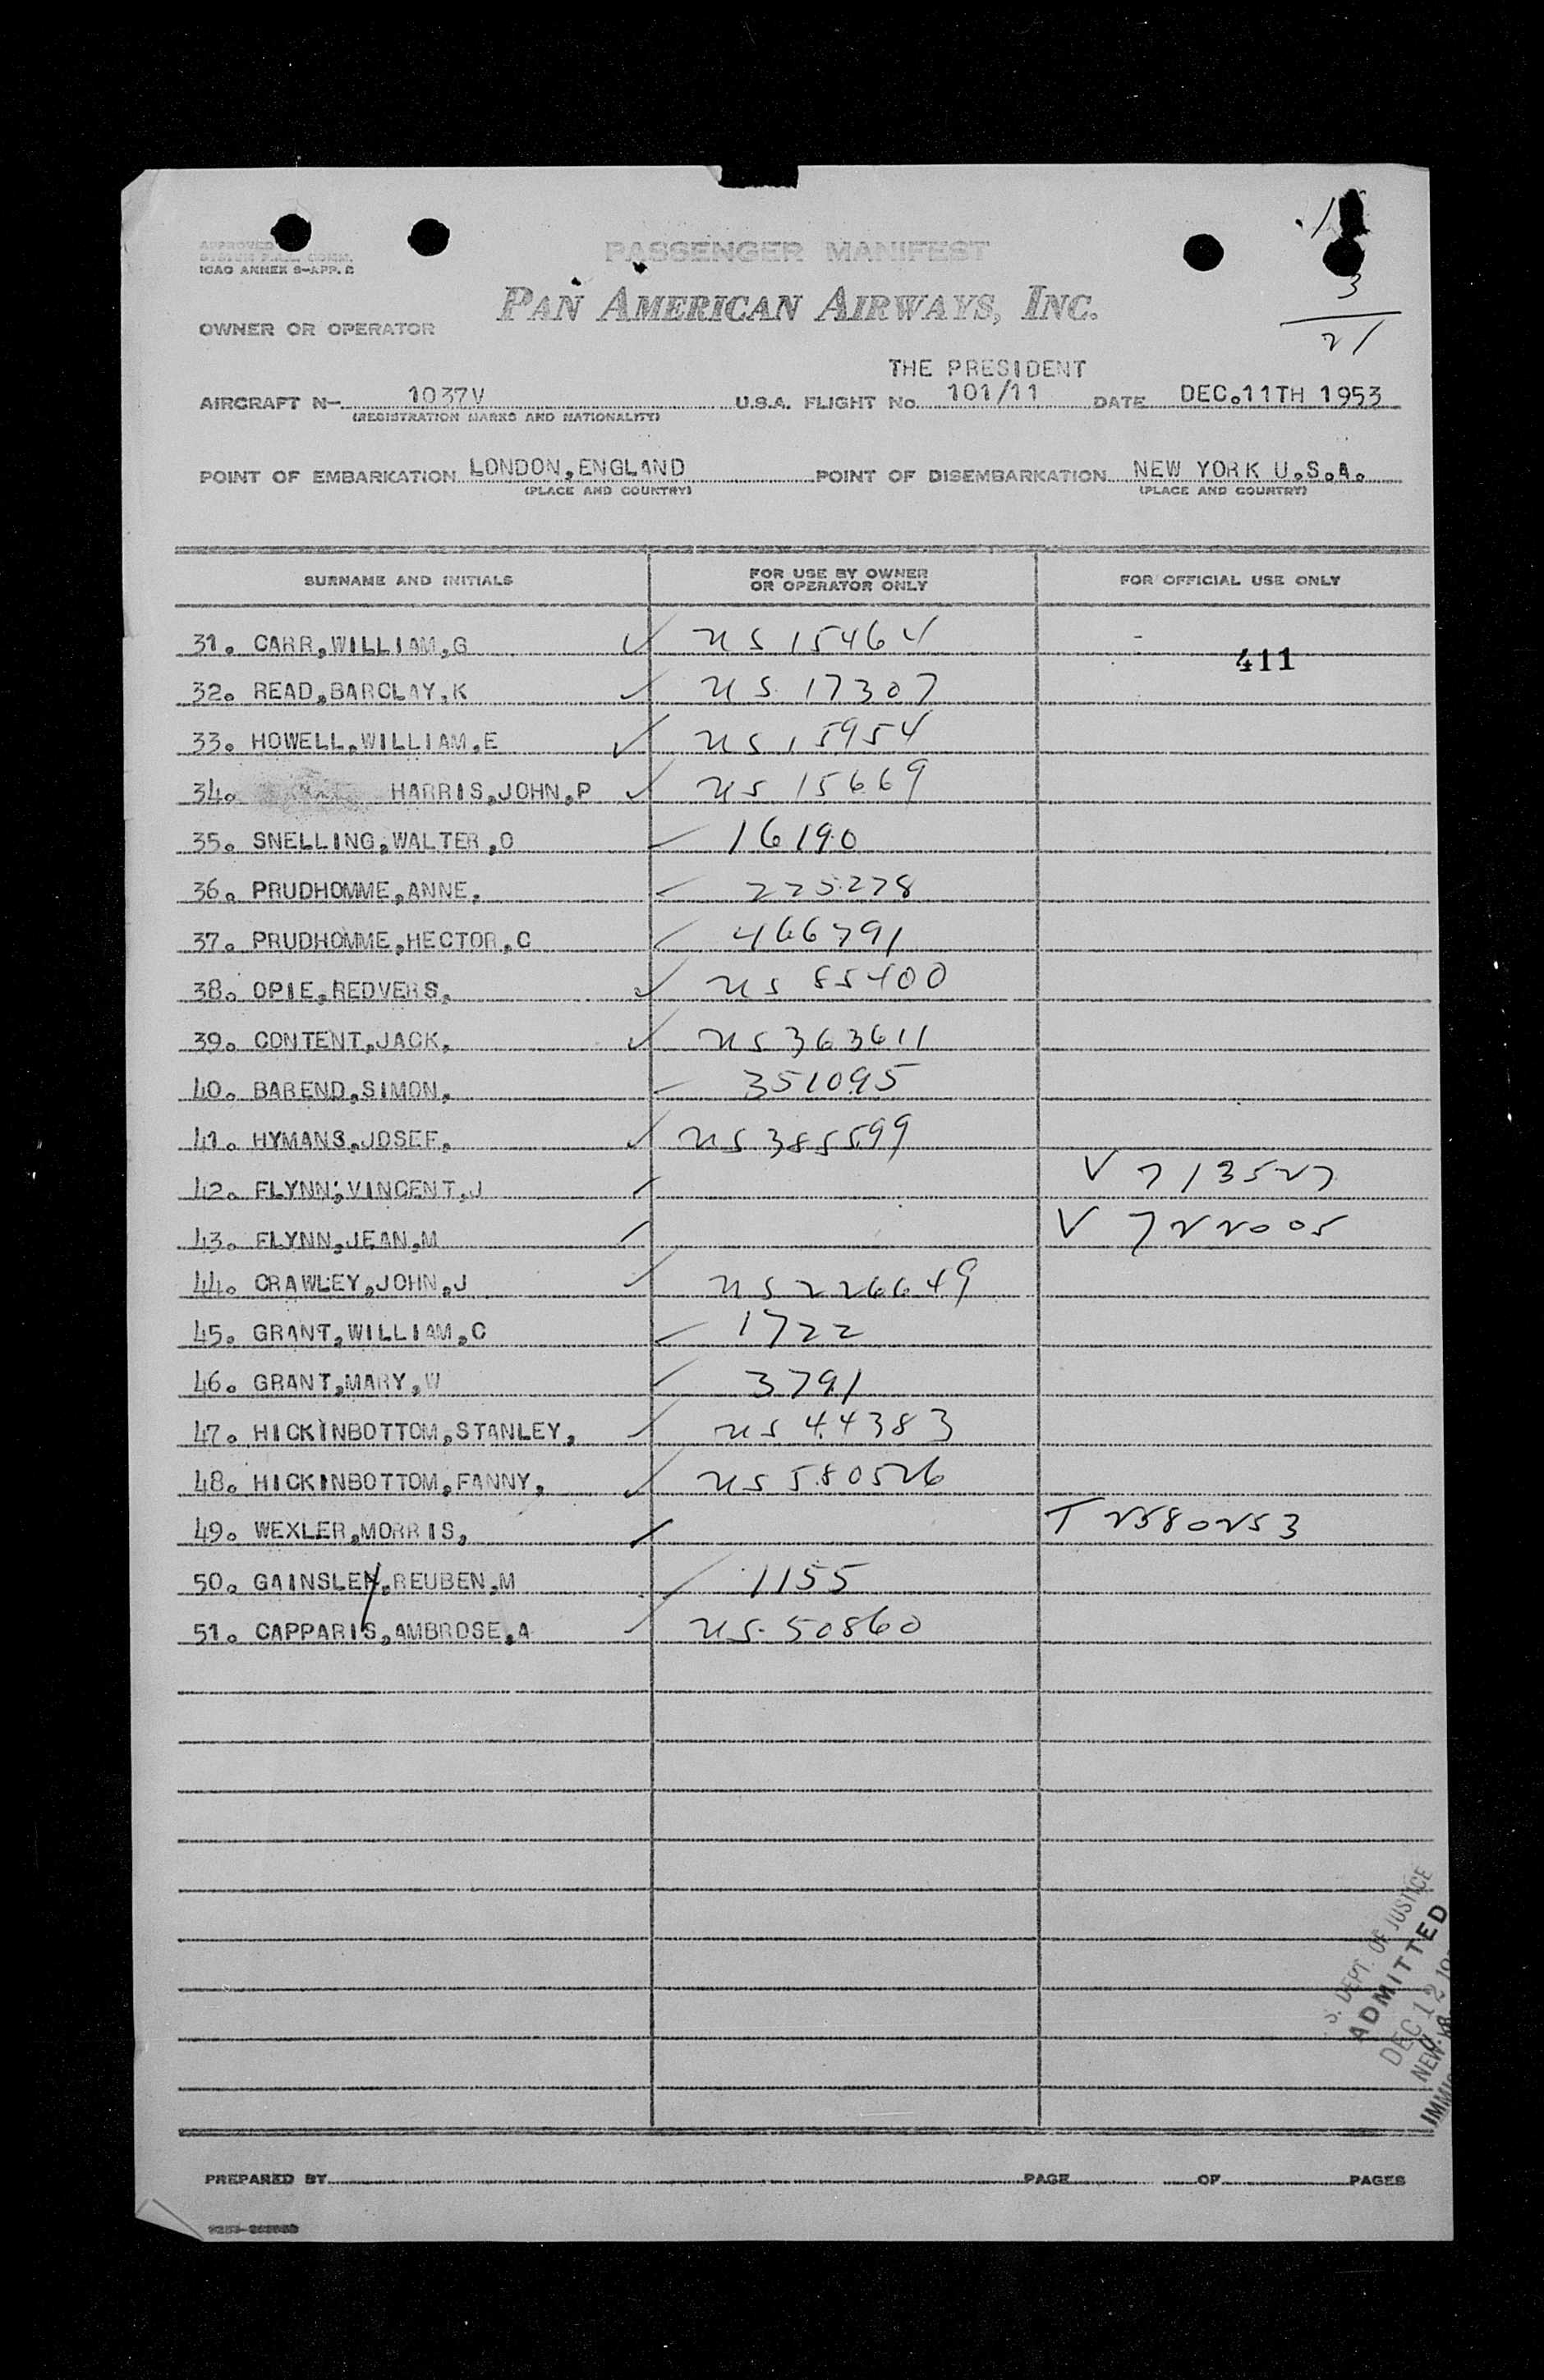 APPROVED
ICAO ANNEX 9-APP. 2
PASSENGER MANIFEST
PAN AMERICAN AIRWAYS, INC.
3
21
OWNER OR OPERATOR
THE PRESIDENT
AIRCRAFT N- 1037V U.S.A. FLIGHT No. 101/11 DATE DEC.11TH 1953
(REGISTRATION MARKS AND NATIONALITY)
POINT OF EMBARKATION LONDON,ENGLAND POINT OF DISEMBARKATION NEW YORK U.S.A.
(PLACE AND COUNTRY) (PLACE AND COUNTRY)
SURNAME AND INITIALS FOR USE BY OWNER OR OPERATOR ONLY FOR OFFICIAL USE ONLY
31. CARR,WILLIAM,G ✓ US 15464
411
32. READ,BARCLAY,K ✓ US 17307
33. HOWELL,WILLIAM,E ✓ US 15954
34. HARRIS,JOHN,P ✓ US 15669
35. SNELLING,WALTER,O ✓ 16190
36. PRUDHOMME,ANNE, ✓ 225278
37. PRUDHOMME,HECTOR,C ✓ 466791
38. OPIE,REDVERS, ✓ US 85400
39. CONTENT,JACK, ✓ US 363611
40. BAREND,SIMON, ✓ 351095
41. HYMANS,JOSEF, ✓ US 385599
42. FLYNN,VINCENT,J ✓ V 713527
43. FLYNN,JEAN,M ✓ V 722005
44. CRAWLEY,JOHN,J ✓ US 226649
45. GRANT,WILLIAM,C ✓ 1722
46. GRANT,MARY,W ✓ 3791
47. HICKINBOTTOM,STANLEY, ✓ US 44383
48. HICKINBOTTOM,FANNY, ✓ US 580526
49. WEXLER,MORRIS, ✓ T 2580253
50. GAINSLEN,REUBEN,M ✓ 1155
51. CAPPARIS,AMBROSE,A ✓ US. 50860
S. DEPT. OF JUSTICE
ADMITTED
DEC 12
NEW
PREPARED BY PAGE OF PAGES